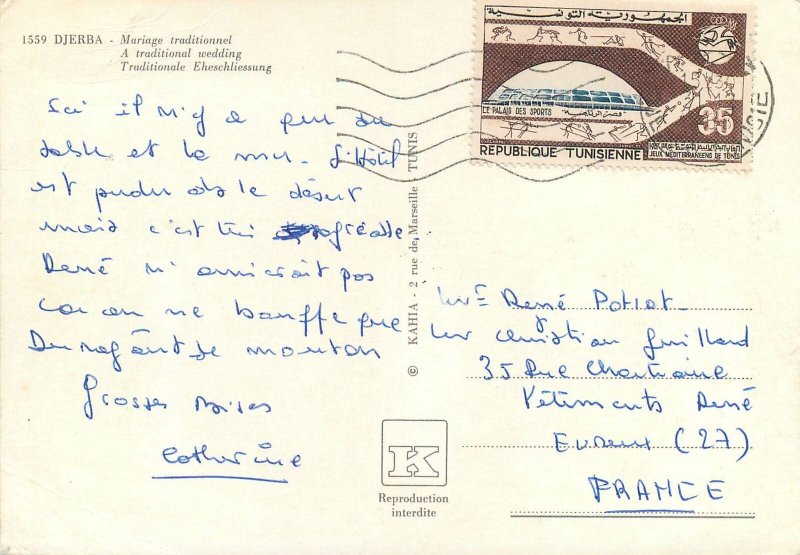 1559 DJERBA - Mariage traditionnel
A traditional wedding
Traditionale Eheschliessung
Ici il n'y a que du
sable et la mer. L'Hôtel
est perdu ds le désert
mais c'est très agréable
René n'aimerait pas
car on ne bouffe que
Du ragoût de mouton
Grosses Bises
Catherine
© KAHIA - 2 rue de Marseille - TUNIS
K
Reproduction
interdite
الجمهورية التونسية
LE PALAIS DES SPORTS قصر الرياضة
35
REPUBLIQUE TUNISIENNE
JEUX MEDITERRANEENS DE TUNIS
René Potiot
Christian Guillard
35 Rue Chartraine
Vêtements René
Evreux (27)
FRANCE